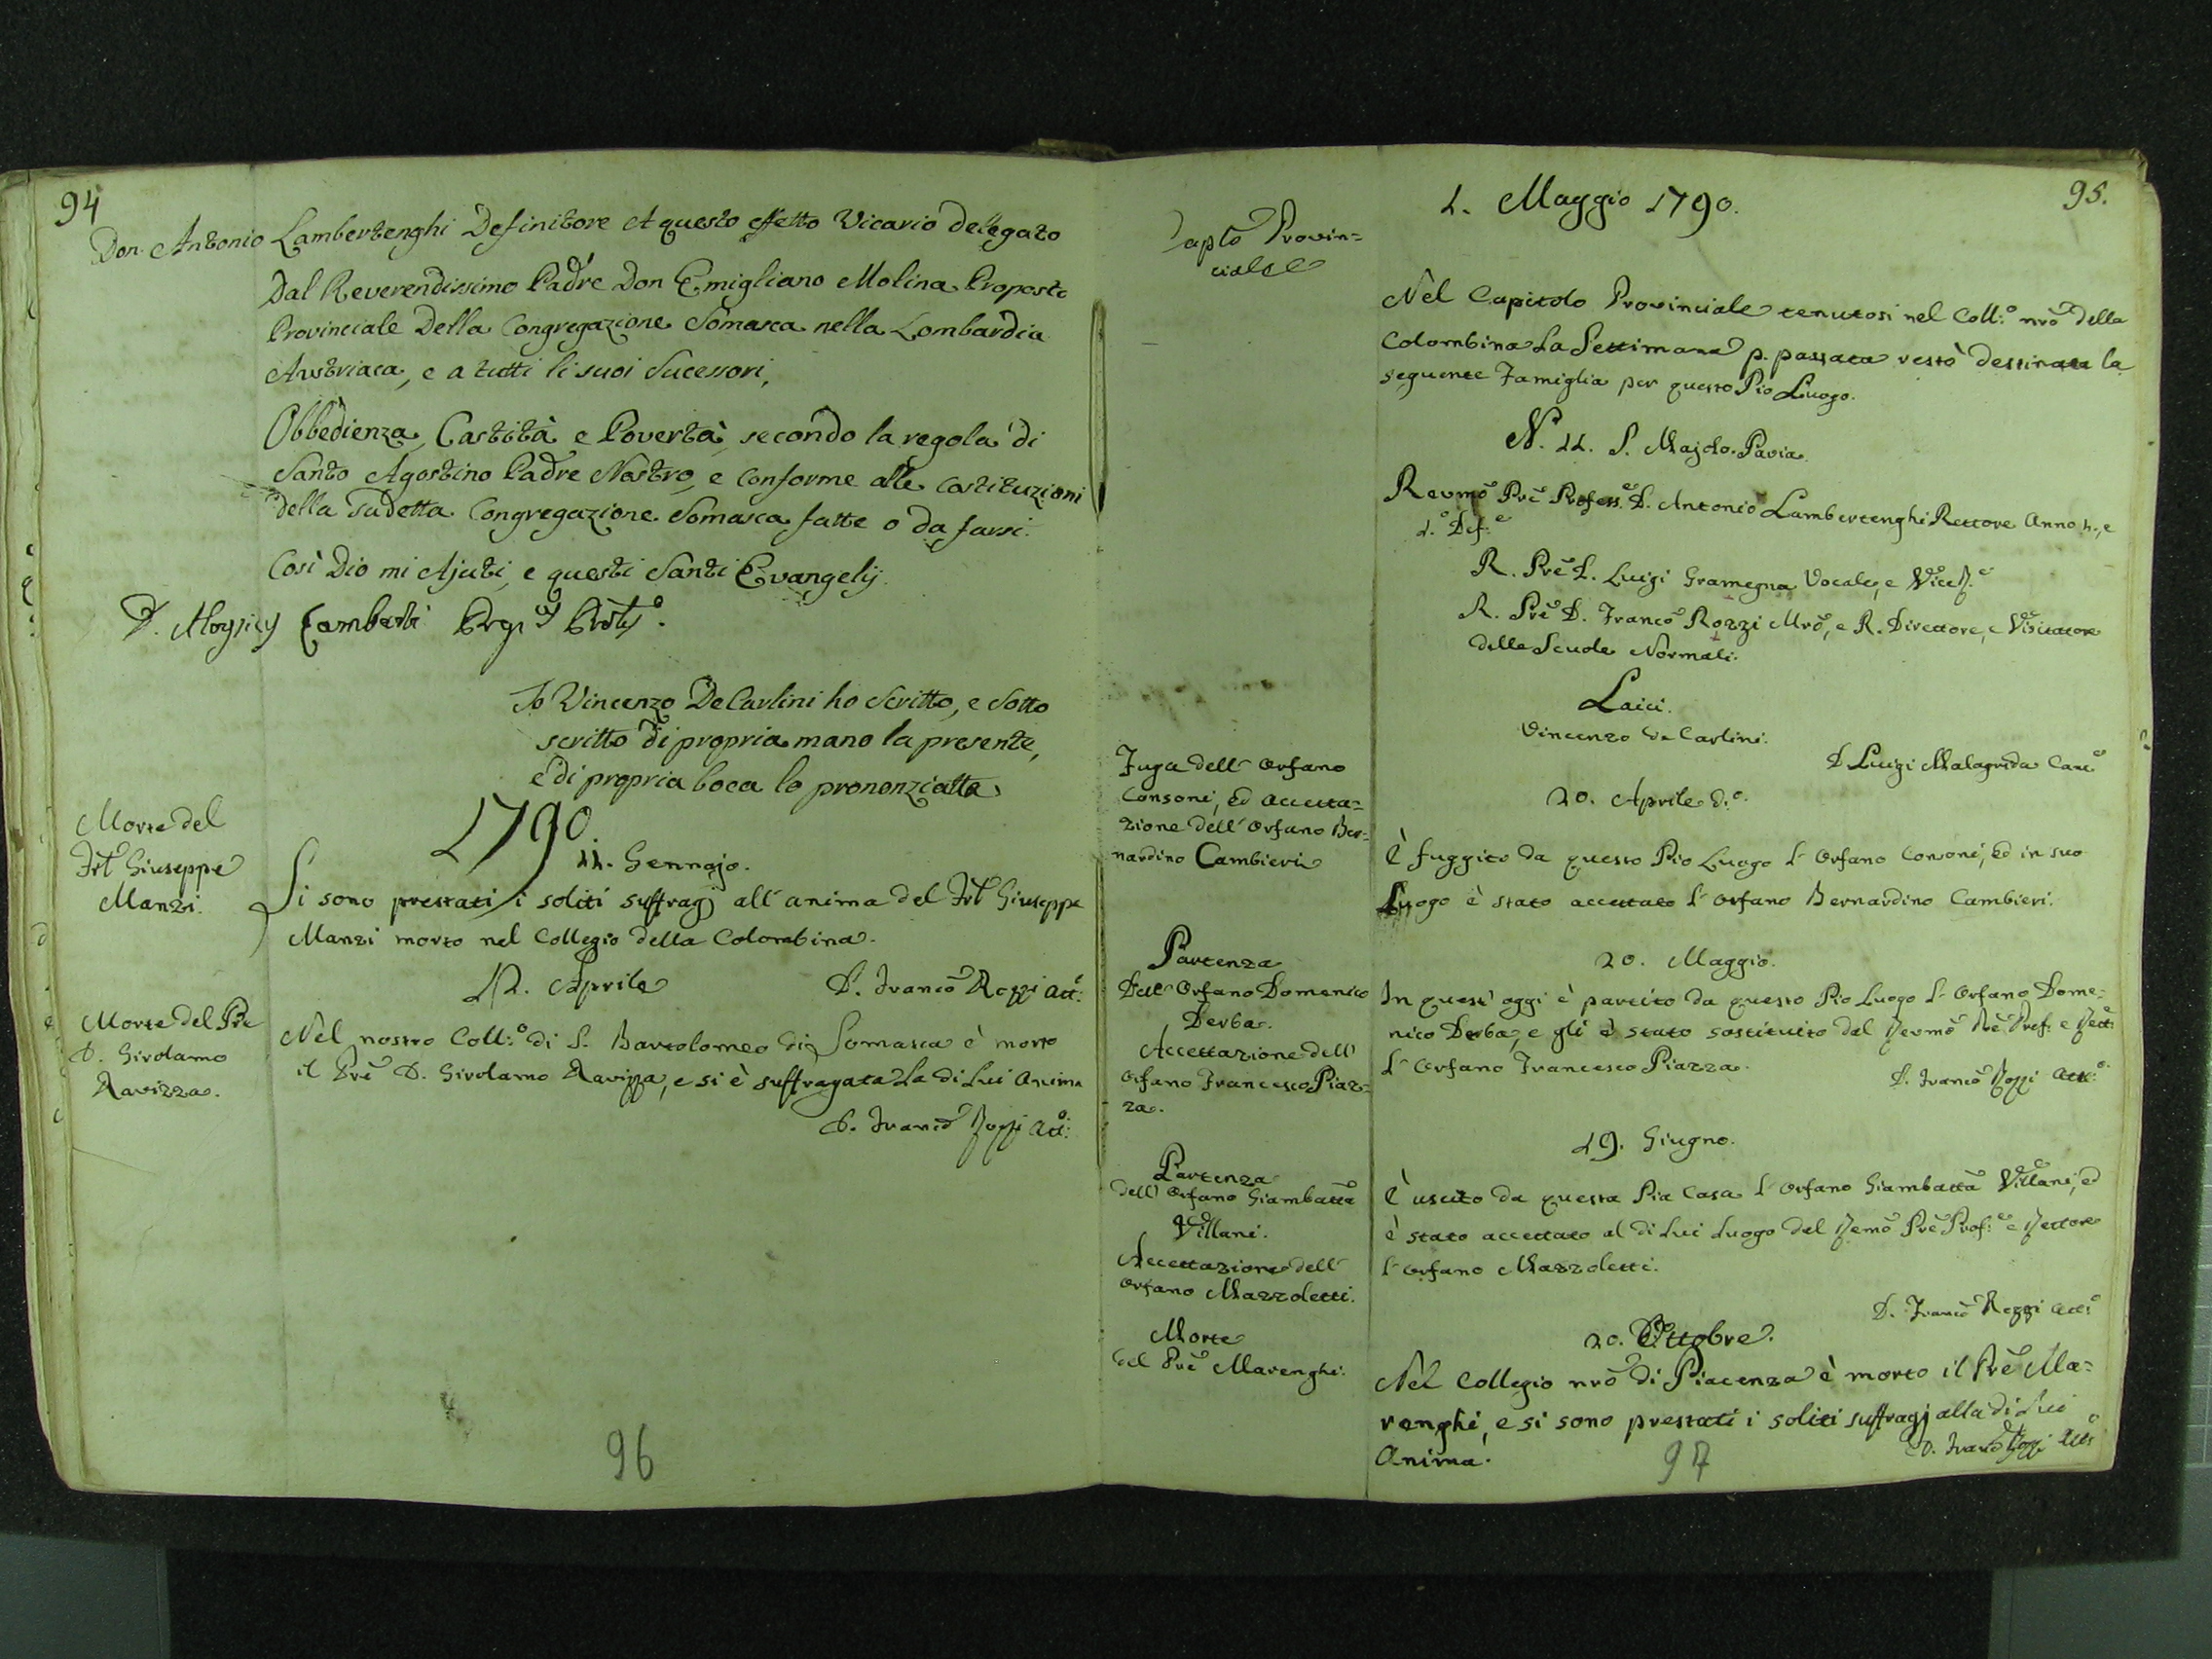 94
Don Antonio Lambertenghi Definitore A questo effetto Vicario delegato
Dal Reverendissimo Padre Don Emigliano Molina Proposto
Provinciale Della Congregazione Somasca nella Lombardia
Austriaca, e a tutti li suoi Sucessori,
Obbedienza, Castità e Povertà, secondo la regola di
Santo Agostino Padre Nostro, e Conforme alle Costituzioni
della Sudetta Congregazione Somasca fatte o da farsi.
Così Dio mi Ajuti, e questi Santi Evangelij.
Io Vincenzo De Carlini ho Scritto, e Sotto
scritto di propria mano la presente,
e di propria boca lo prononziatta
1790.
Morte del
Frl̃o Giuseppe
Manzi.
11. Gennajo.
Si sono prestati i soliti suffragj all'anima del Frl̃o Giuseppe
Manzi morto nel Collegio della Colombina.
D. Franc̃o Rozzi Att.º
12. Aprile
Morte del Prẽ
D. Girolamo
Ravizza.
Nel nostro Coll:º di S. Bartolomeo di Somasca è morto
il Prẽ D. Girolamo Ravizza, e si è suffragata La di Lui Anima
D. Franc̃o Rozzi Att:º
96
95.
1. Maggio 1790.
Caplõ Provin=
ciale
Nel Capitolo Provinciale tenutosi nel Coll:º nrõ della
Colombina La Settimana p. passata restò destinata la
seguente Famiglia per questo Pio Luogo.
N. 11. S. Majolo. Pavia.
Revmõ Prẽ Profess.e D. Antonio Lambertenghi Rettore Anno 4., e
1.º Def.e
R. Prẽ D. Luigi Gramegna Vocale, e ViceR.e
R. Prẽ D. Franc̃o Rozzi Mrõ, e R. Direttore, e Visitatore
delle Scuole Normali.
Laici.
Vincenzo de Carlini.
D. Luigi Malagrida Canc.e
20. Aprile d.º
Fuga dell'Orfano
Consoni, ed Accetta=
zione dell'Orfano Ber=
nardino Cambieri
È fuggito da questo Pio Luogo l'Orfano Consoni, ed in suo
Luogo è stato accettato l'Orfano Bernardino Cambieri.
20. Maggio.
Partenza
Dell'Orfano Domenico
Derba.
Accettazione dell'
Orfano Francesco Piaz=
za.
In quest'oggi è partito da questo Pio Luogo l'Orfano Dome=
nico Derba, e gli è stato sostituito dal Revmõ Prẽ Prof: e Rett:
l'Orfano Francesco Piazza.
D. Franc̃o Rozzi Att:º
19. Giugno.
Partenza
dell'Orfano Giambatt̃a
Villani.
Accettazione dell'
Orfano Mazzoletti.
È uscito da questa Pia Casa l'Orfano Giambatt̃a Villani, ed
è stato accettato al di Lui Luogo dal Remõ Prẽ Prof:e e Rettore
l'Orfano Mazzoletti.
D. Franc̃o Rozzi Att:º
20. Ottobre.
Morte
del Prẽ Marenghi.
Nel Collegio nrõ di Piacenza è morto il Prẽ Ma=
renghi, e si sono prestati i soliti suffragj alla di Lui
Anima.
D. Franc̃o Rozzi Att.º
97